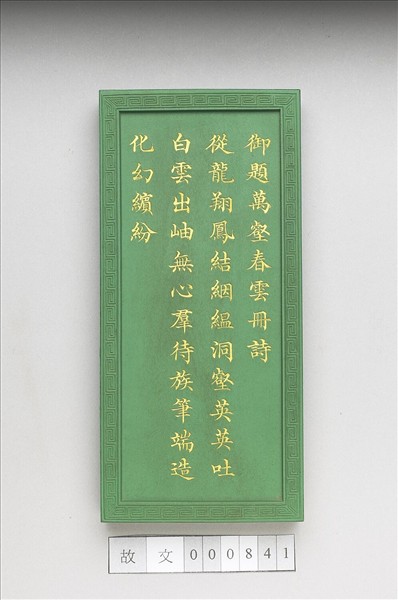 御題萬壑春雲冊詩
從龍翔鳳結絪縕洞壑英英吐
白雲出岫無心羣待族筆端造
化幻繽紛
故文000841